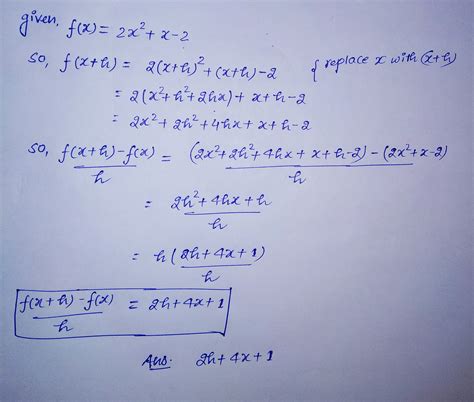 given, f(x) = 2x² + x - 2
so, f(x+h) = 2(x+h)² + (x+h) - 2 { replace x with (x+h)
= 2(x² + h² + 2hx) + x + h - 2
= 2x² + 2h² + 4hx + x + h - 2
so, f(x+h) - f(x) / h = (2x² + 2h² + 4hx + x + h - 2) - (2x² + x - 2) / h
= 2h² + 4hx + h / h
= h(2h + 4x + 1) / h
f(x+h) - f(x) / h = 2h + 4x + 1
Ans. 2h + 4x + 1